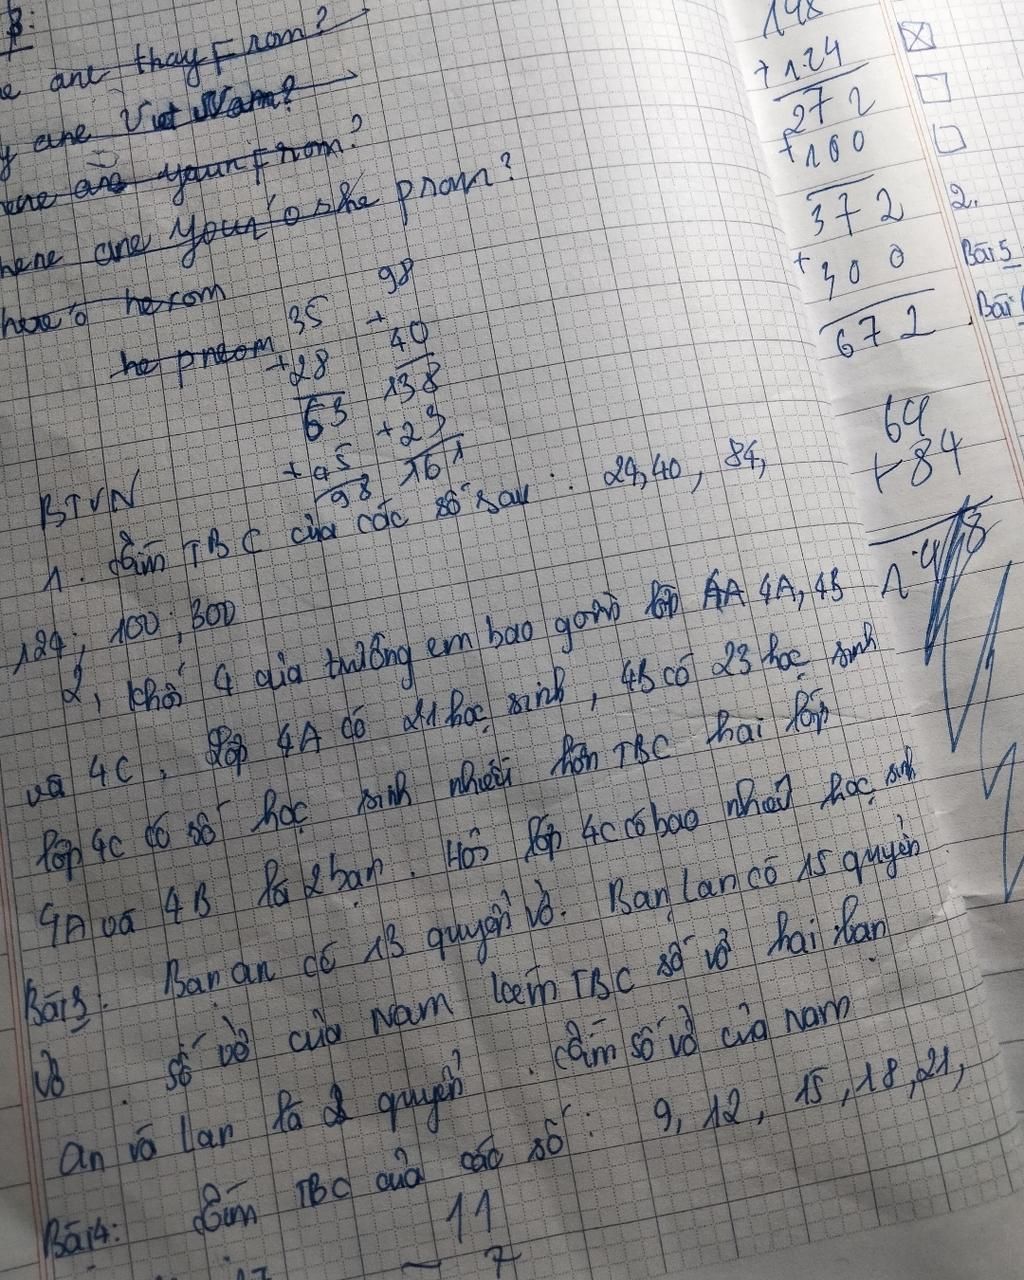 are thay From?
are Viet Nam?
are your From?
here are your'o she prom?
here's herom
he preom
35
+28
63
+35
98
98
+
40
138
+23
161
BTVN
1. tìm TBC của các số sau : 24, 40, 84,
124; 100; 300
2, khối 4 của trường em bao gồm lớp 4A, 4B
và 4C. lớp 4A có 21 học sinh, 4B có 23 học sinh
lớp 4C có số học sinh nhiều hơn TBC hai lớp
4A và 4B là 2 bạn. Hỏi lớp 4C có bao nhiêu học sinh
Bài 3: Bạn an có 13 quyển vở. Bạn Lan có 15 quyển
vở. số vở của Nam kém TBC số vở hai bạn
an và Lan là 2 quyển. tìm số vở của nam
Bài 4: tìm TBC của các số: 9, 12, 15, 18, 21,
11
- 7
148
+124
272
+100
372
+
300
672
64
+84
148
2.
Bài 5
Bài